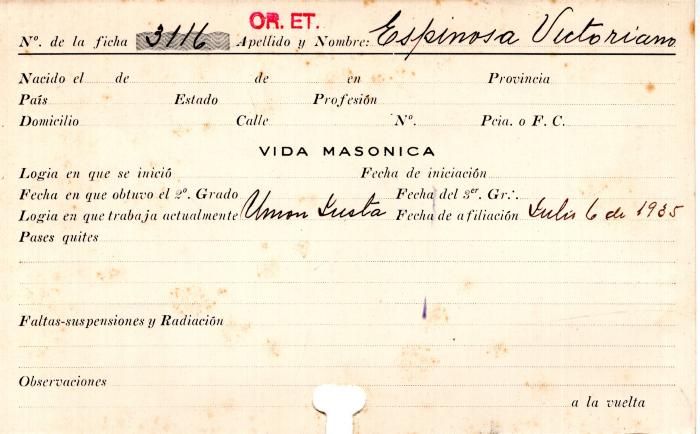 OR. ET.
Nº. de la ficha 3116 Apellido y Nombre: Espinosa Victoriano
Nacido el de de en Provincia
País Estado Profesión
Domicilio Calle Nº. Pcia. o F. C.
VIDA MASONICA
Logia en que se inició Fecha de iniciación
Fecha en que obtuvo el 2º. Grado Fecha del 3er. Gr∴.
Logia en que trabaja actualmente Union Justa Fecha de afiliación Julio 6 de 1935
Pases quites
Faltas-suspensiones y Radiación
Observaciones
a la vuelta